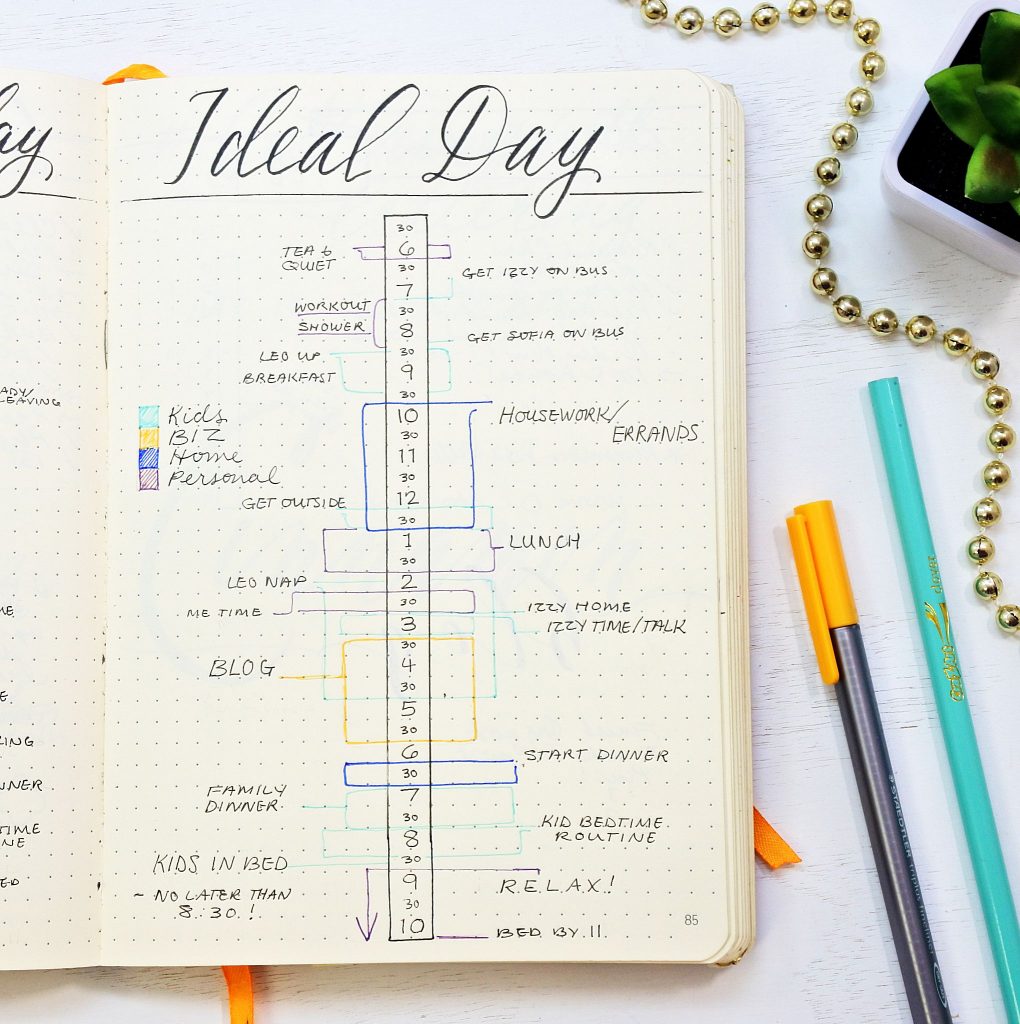 ay
Ideal Day
30
TEA &
QUIET
6
30
GET IZZY ON BUS
7
WORKOUT
30
SHOWER
8
GET SOFIA ON BUS
LEO UP
30
BREAKFAST
9
30
Kids
BIZ
Home
Personal
10
HOUSEWORK/
ERRANDS
30
11
30
12
GET OUTSIDE
30
1
LUNCH
30
LEO NAP
2
ME TIME
30
IZZY HOME
3
IZZY TIME/TALK
30
BLOG
4
30
5
30
6
START DINNER
30
FAMILY
DINNER
7
30
KID BEDTIME
ROUTINE
8
KIDS IN BED
30
~ NO LATER THAN
8:30!
9
R.E.L.A.X!
30
10
BED BY 11
85
ADY/
LEAVING
ME
E
LING
NNER
TIME
NE
ED
STAEDTLER triplus fineliner